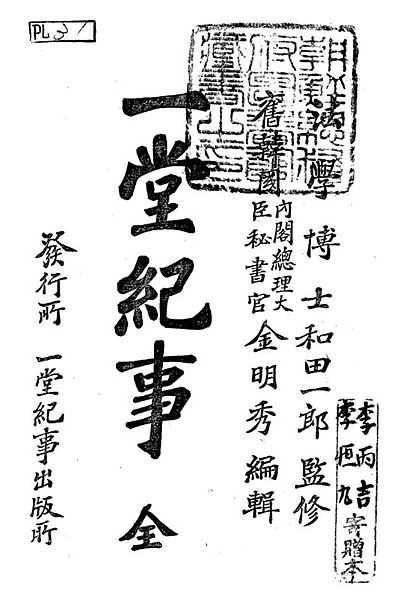 PL
法學博士和田一郎監修
舊韓國內閣總理大臣秘書官金明秀編輯
一堂紀事 全
發行所 一堂紀事出版所
李丙吉
李恒九
寄贈本